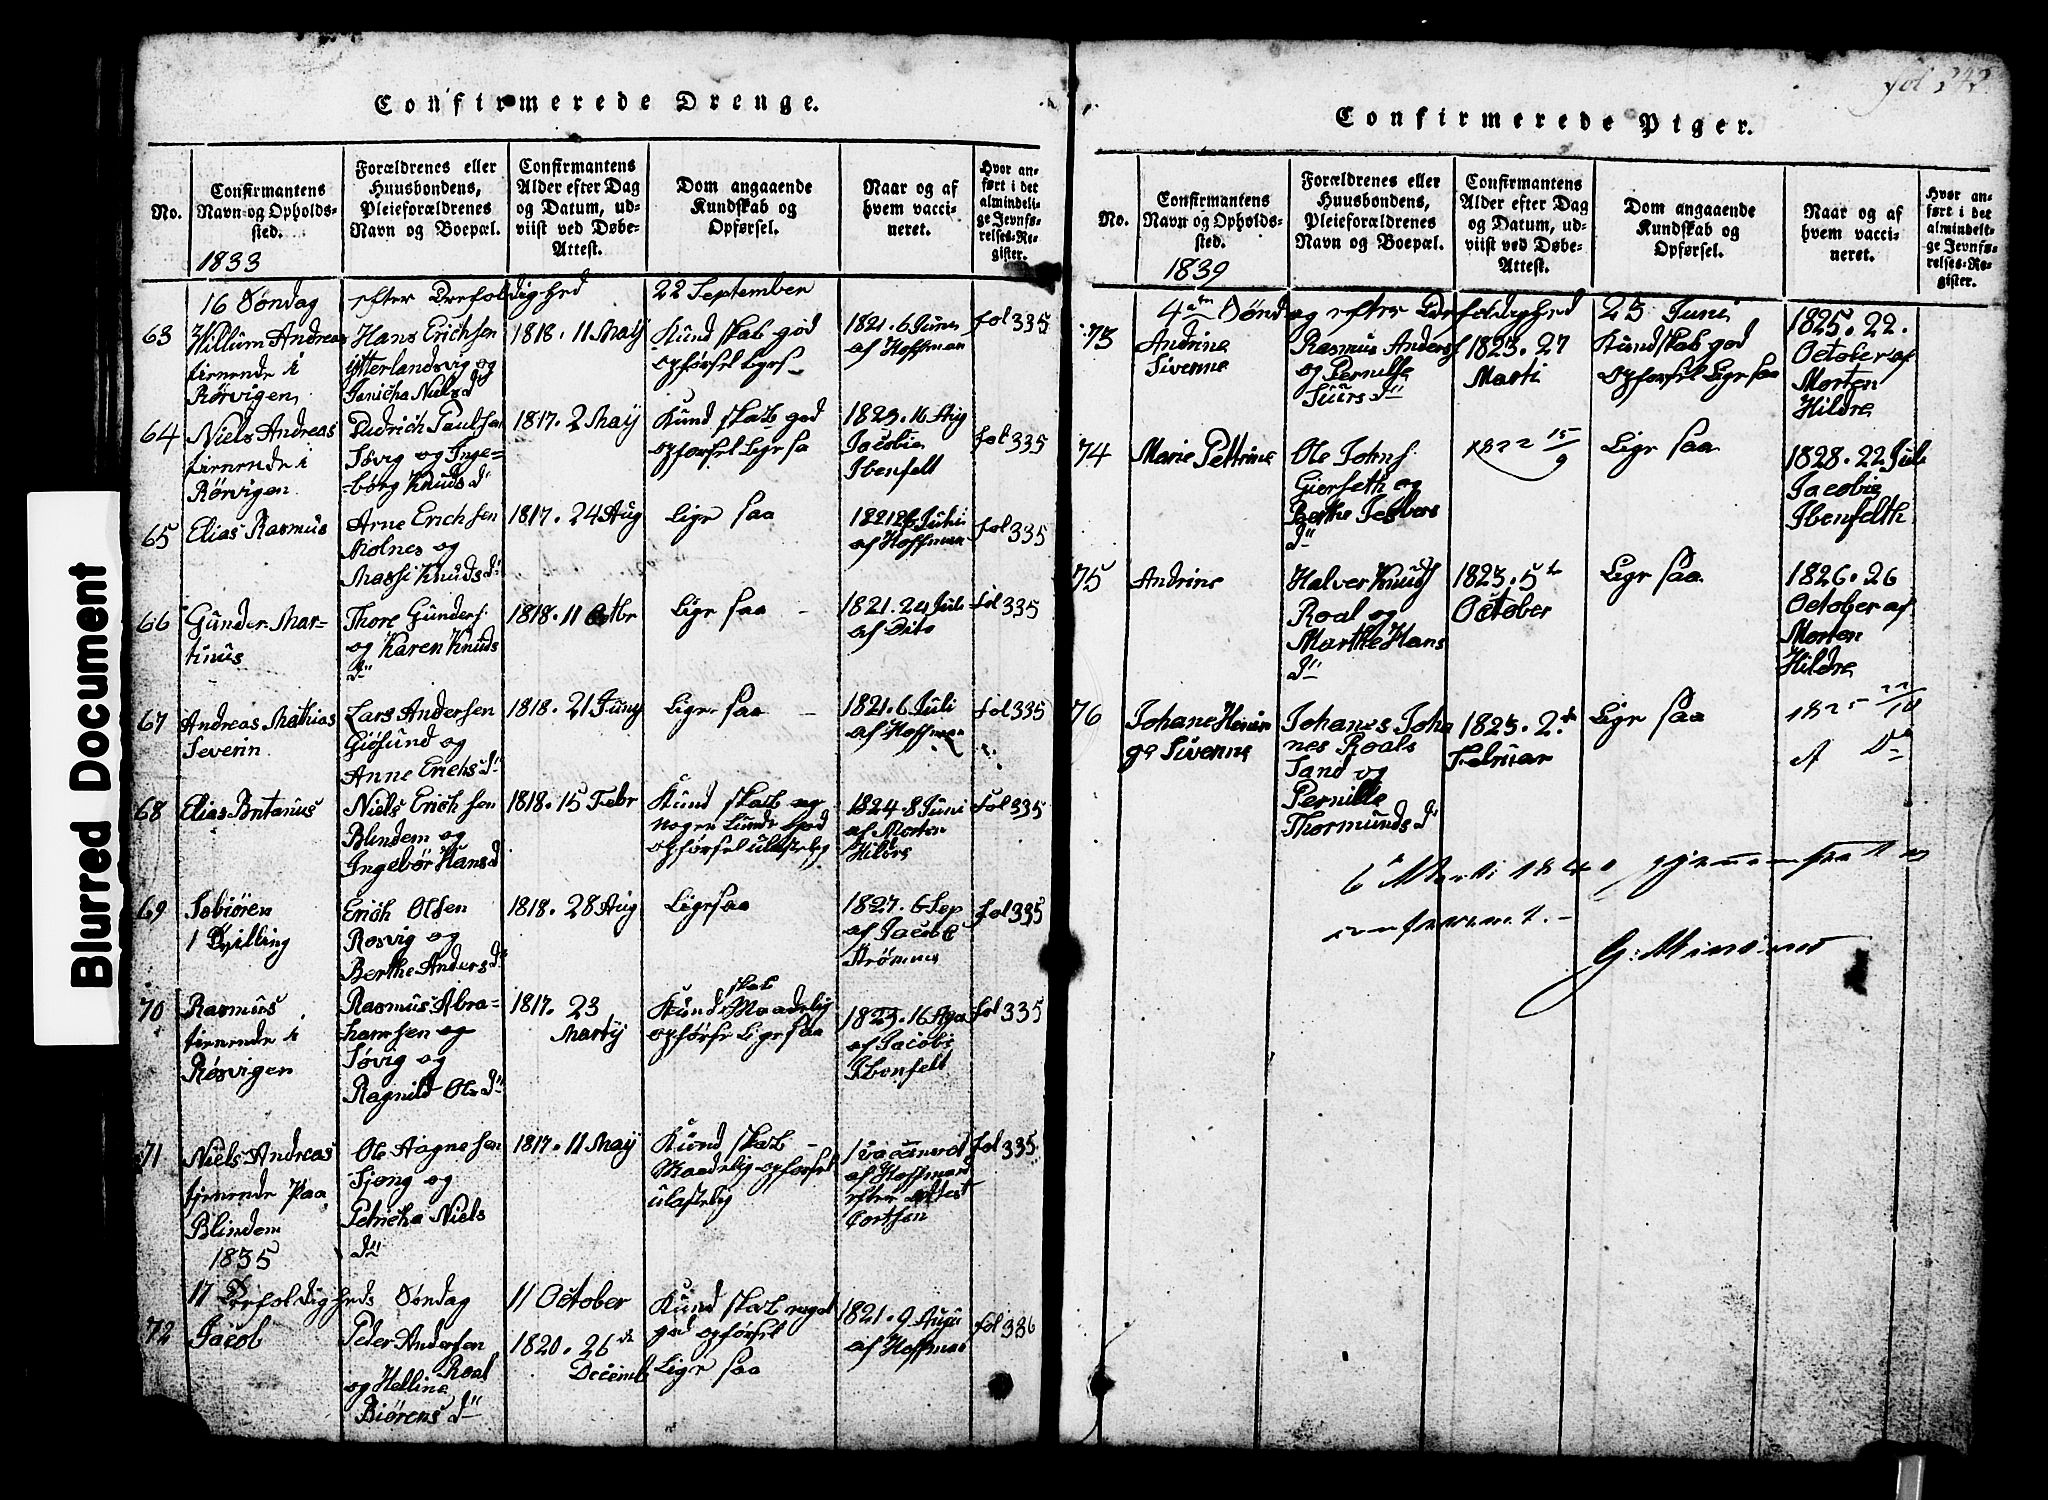 Blurred Document
Confirmerede Drenge.
No.
Confirmantens
Navn og Opholds-
sted.
1833
Forældrenes eller
Huusbondens,
Pleieforældrenes
Navn og Boepæl.
Confirmantens
Alder efter Dag
og Datum, ud-
viist ved Døbe-
Attest.
Dom angaaende
Kundskab og
Opførsel.
Naar og af
hvem vacci-
neret.
Hvor an-
ført i det
almindeli-
ge Jevnfø-
relses-Re-
gister.
16 Søndag efter Trefoldighed 22 September
63
Willum Andreas
tienende i
Rørvigen
Hans Erichsen
ytterlandsvig og
Janicha Nielsd
1818. 11 May
Kundskab god
opførsel liges
1821. 6 Juni
af Hoffman
fol 335
64
Niels Andreas
tienende i
Rørvigen
Didrich Paulsen
Søvig og Inge-
borg Knudsd
1817. 2 May
Kundskab god
opførsel ligesa
1823. 16 Aug
Jacobia
Ibenfelt
fol 335
65
Elias Rasmus
Arne Erichsen
Molnes og
Massi Knudsd
1817. 24 Aug
Lige saa
1821 26 Juni
af Hoffman
fol 335
66
Gunder Mar-
tinus
Thore Gunders
og Karen Knuds
d
1818. 11 Octbr
Lige saa
1821. 24 Juli
af Dito
fol 335
67
Andreas Mathias
Severin
Lars Andersen
Giøsund og
Anne Erichsd
1818. 21 Juny
Lige saa
1821. 6 Juli
af Hoffman
fol 335
68
Elias Bntanus
Niels Erichsen
Blindem og
Ingebor Hansd
1818. 15 Febr
Kundskab og
nogenlunde god
opførsel ulastelig
1824. 8 Juni
af Morten
Hildre
fol 335
69
Tobiøren
1 Tvilling
Erich Olsen
Rosvig og
Berthe Andersd
1818. 28 Aug
Ligesaa
1827. 6 Sep
af Jacob
Strømmen
fol 335
70
Rasmus
tienende i
Røsvigen
Rasmus Abra-
hamsen og
Søvig og
Ragnild Olsd
1817. 23
Martj
Kundskab Maadelig
opførse Ligesaa
1823. 16 Aga
af Jacobi
Ibenfelt
fol 335
71
Niels Andreas
tjenende paa
Blindem
Ole Aagnesen
Sjong og
Petricha Niels
d
1817. 11 May
Kundskab
Maadelig opførsel
ulastelig
vaccineret
af Hoffmand
efter attest
Cortsen
fol 335
1835
17 Trefoldigheds Søndag 11 October
72
Jacob
Peder Andersen
Roal
og Helline
Biørensd
1820. 26de
Decemb
Kundskab meget
god opførsel
Lige saa
1821. 9 Augu
af Hoffman
fol 336
fol 242
Confirmerede Piger.
No.
Confirmantens
Navn og Opholds-
sted.
1839
Forældrenes eller
Huusbondens,
Pleieforældrenes
Navn og Boepæl.
Confirmantens
Alder efter Dag
og Datum, ud-
viist ved Døbe-
Attest.
Dom angaaende
Kundskab og
Opførsel.
Naar og af
hvem vacci-
neret.
Hvor an-
ført i det
almindeli-
ge Jevnfø-
relses-Re-
gister.
4de Søndag efter Trefoldighed 23 Juni
73
Andrine
Sivenne
Rasmus Anders
og Pernille
Siursd
1823. 27
Marti
Kundskab god
opførsel Lige saa
1825. 22.
October af
Morten
Hildre
74
Marie Pettrine
Ole Johns
Gierseth og
Berthe Jetbers
d
1822 15/9
Lige saa
1828. 22 Juli
Jacobie
Ibenfelth
75
Andrine
Halver Knuds
Roal og
Marthe Hans
d
1823. 5te
October
Lige saa
1826. 26
October af
Morten
Hildre
76
Johane
Sivenne
Johanes Joha
nes Roals
Sand og
Pernille
Thormundsd
1823. 2den
Februar
Lige saa
1825 22/10
af Do
6 Marti 1840